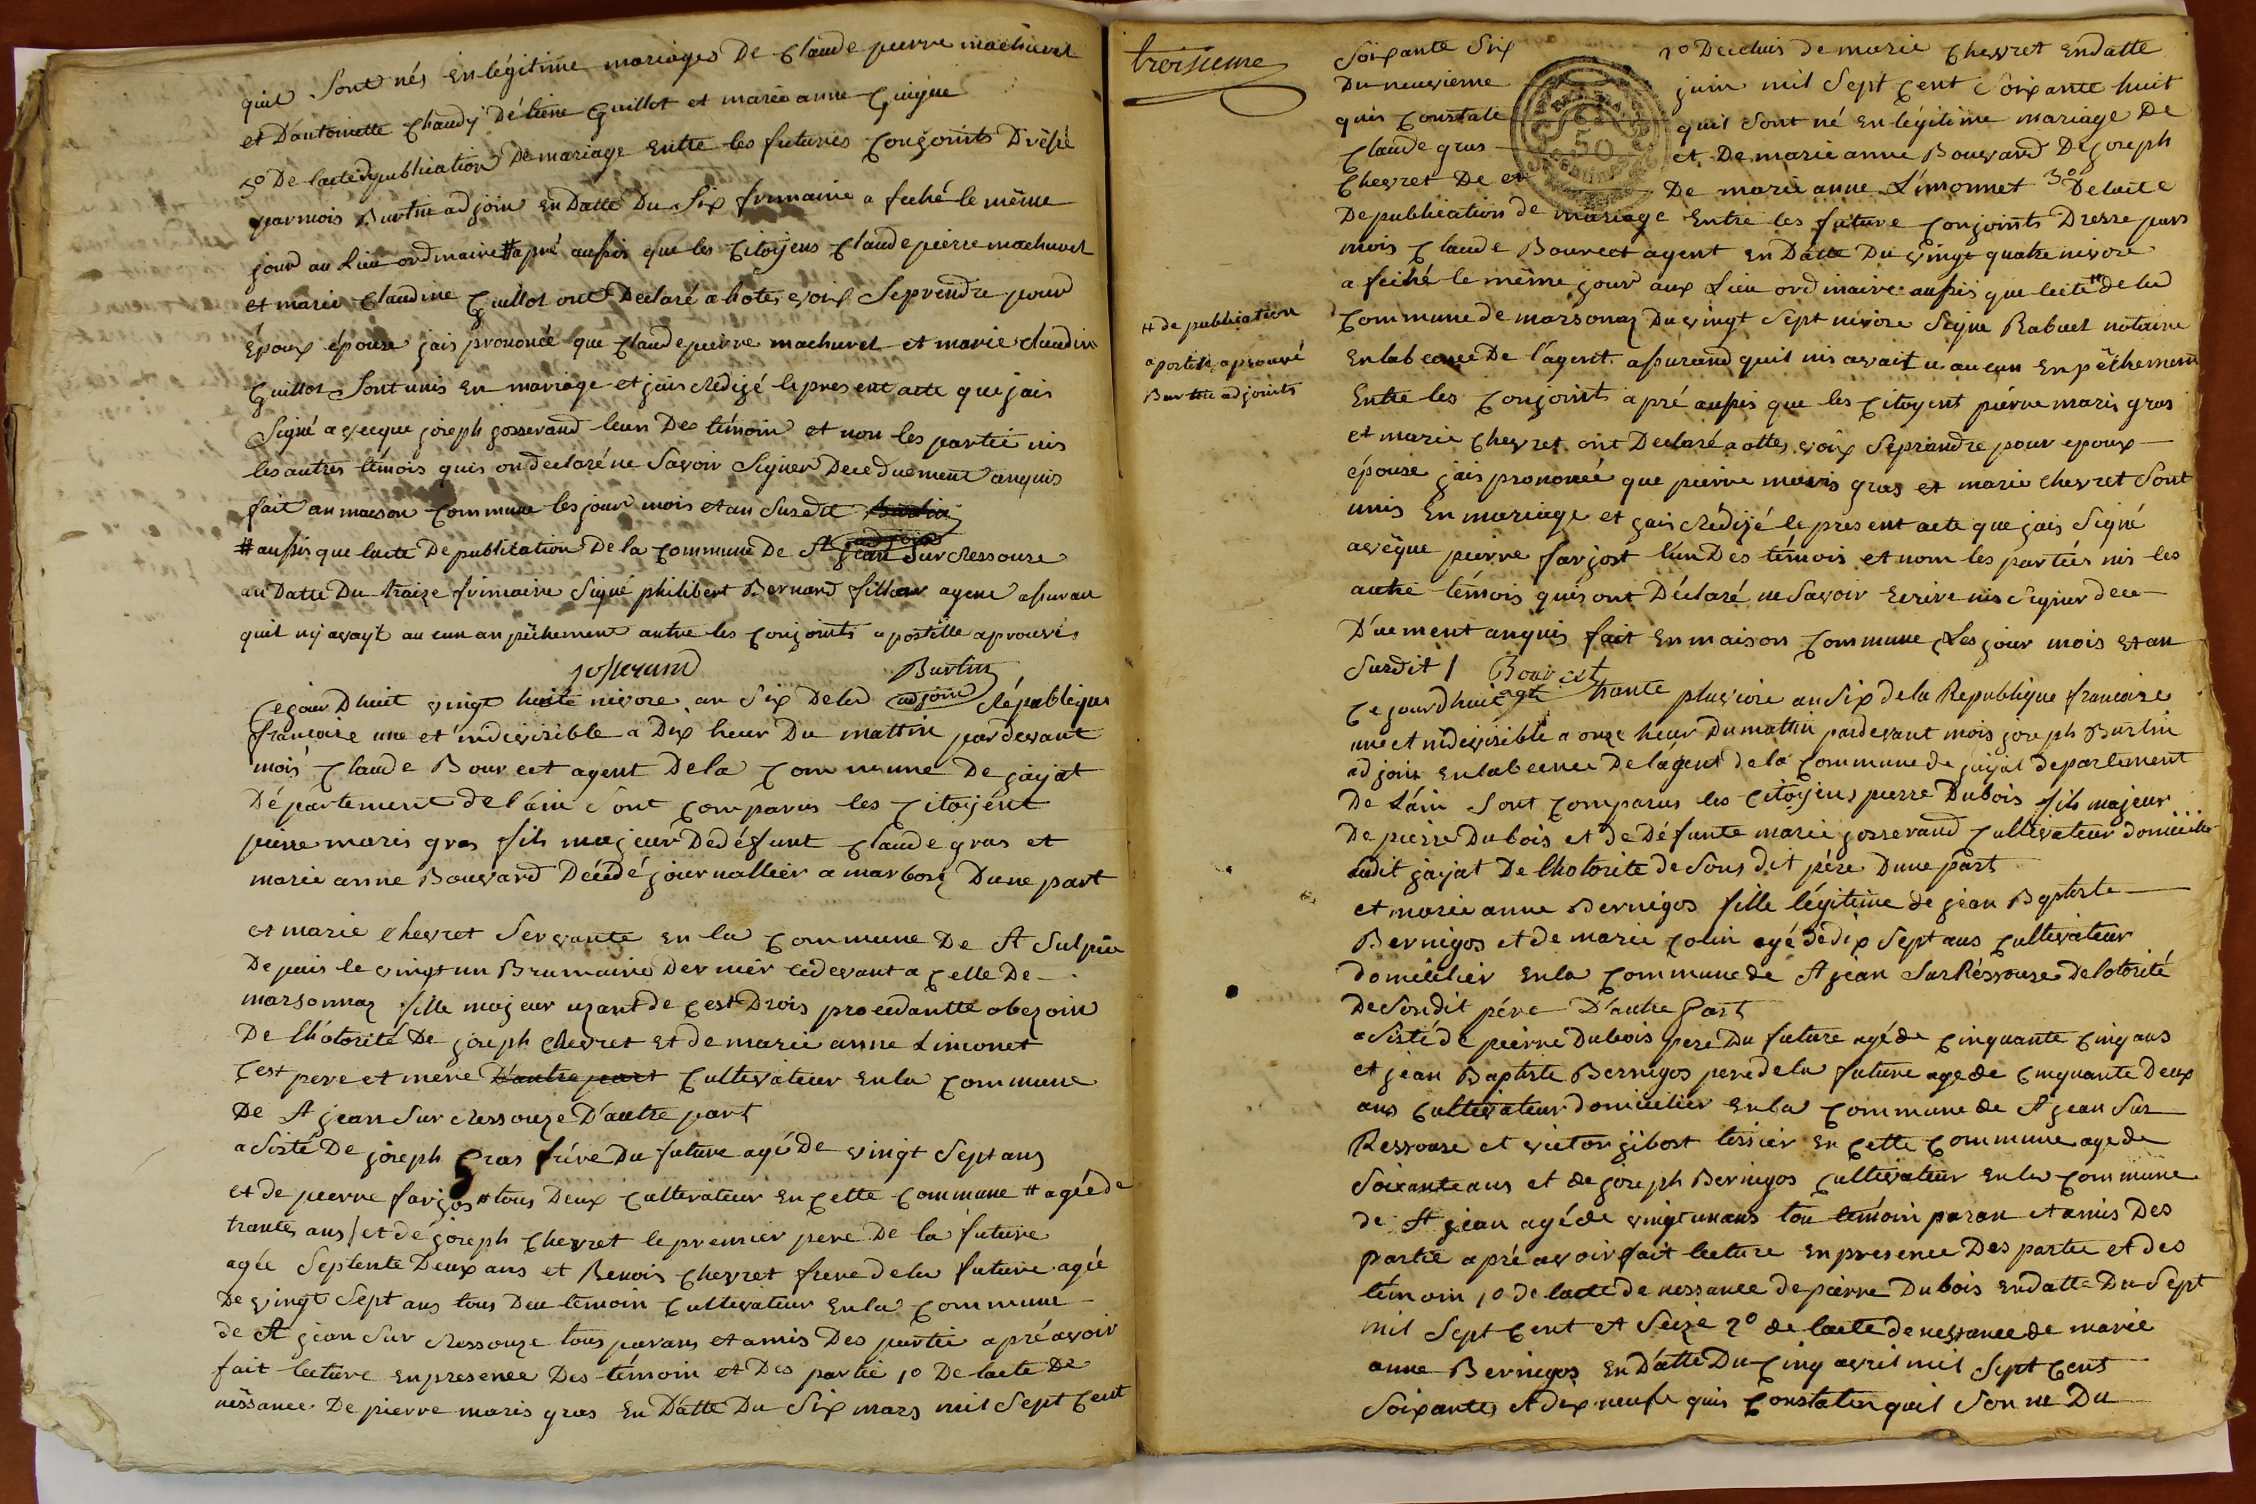 quil sont nés en légitime mariages De Claude pierre machuret
et D'antoinette Chaudy Détiene Guillot et marie anne Guigue
3o De lacte De publication De mariage entre les futures Conjoints Dressé
par mois Burtin adjoin en Datte Du Six frimaire a fiché le même
jour au Lieu ordinaire # apré aussis que les Citoyens Claude pierre machuret
et marie Claudine Guillot ont Declaré a hotes voix Se prendre pour
Époux épouse jais prononcé que Claude pierre machuret et marie claudine
Guillot Sont unis en mariage et jais redigé le present acte que jais
Signé avecque joseph josserand leun Des témoin et non les partie nis
les autres témois quis on declaré ne Savoir Signer De ce duement anquis
fait an maison Commune les jour mois et an Susdit Burtin
adjoin
# aussis que lacte De publication De la Commune De St jean Sur Ressouze
an Datte Du traize frimaire Signé philibert Bernard fillion agene assuran
quil ny avayt aucun anpêchement antre les Conjoints apostille aprouvés
josserand Burtin
adjoin
Cejour D'huit vingt huite nivore an Six De la République
francaise une et indivisible a Dix heur Du mattin par devant
mois Claude Bourcet agent De la Commune De jayat
Département de l'ain Sont Comparus les Citoyént
pierre maris gras fils majeur De défunt Claude gras et
marie anne Bouvard Décédé journallier a marboz Dune part
et marie chevret Servante en la Commune De St Sulpice
Depuis le vingt un Brumaire Dernier cidevant a Celle De
marsonnaz fille majeur uzant de Cest Drois procedantte obezoin
De lhotorité De joseph chevret et de marie anne Limonet
Cest pere et mere D'autre part Cultivateur en la Commune
De St jean Sur Ressouze D'autre part
a Sisté De joseph Gras frère Du future agé De vingt Sept ans
et de pierre farjos # tous Deux Cultivateur en Cette Commune # agée de
trante ans / et dé joseph Chevret le premier pere De la future
agée Septente Deux ans et Benois Chevret frere de la future agée
De vingt Sept ans tous Deu temoin Cultivateur en la Commune
de St jean Sur Ressouze tous parans et amis Des partie apré avoir
fait lecture en presence Des témoin et Des partie 1o De lacte De
néssance De pierre maris gras en Datte Du Six mars mil Sept Cent
troisieme
Soixante Six 2o De celuis de marie Chevret en datte
Du neuvieme juin mil Sept Cent Soixante huit
quis Constate quil Sont né en légitime mariage De
Claude gras et De marie anne Bouvard De joseph
Chevret De et De marie anne Limonnet 3o De lacte
De publication de mariage Entre les future Conjoints Dresse pars
mois Claude Bourcet agent en Datte Du vingt quatre nivore
a feiché le même jour aux Lieu ordinaire aussis que lacte # de la
Commune de marsonaz Du vingt Sept nivore Signe Rabuel notaire
En labcence De l'agent assurand quil nis avait u aucun enpêchement
Entre les Conjoints apré aussis que les Citoyent piérre maris gras
et marie Chevret ont Declaré a ottes voix Se prandre pour epoux
épouse jais prononcé que pierre maris gras et marie chevret Sont
unis En mariage et jais rédigé le present acte que jais Signé
avéque pierre farjost l'un Des témois et nom les partiés nis les
autre témois quis ont Déclaré ne Savoir Ecrire nis Signer De ce
Duement anquis fait En maison Commune Les jour mois et an
Susdit / Bourcet
agt
# de publication
apostille aprouvé
Burtin adjoints
Ce jourdhuit trante pluviore an Six de la Republique francoise
une et indivisible a onze heur Du mattin par devant mois joseph Burtin
adjoin en labcence De lágent de la Commune de jayat departement
De Láin Sont Comparus les Citoyens pierre Dubois fils majeur
De pierre Dubois et De Défunte marie josserand Cultivateur domicilier
audit jayat De lhotorite de Sons dit pére Dune part
et marie anne Bernigos fille légitime de jean Baptiste
Bernigos et de marie Colin agé de dix Sept ans Cultivateur
domicilier en la Commune de St jean Sur Réssouze de lotorité
De Sondit pére D'autre Part
a Sisté de pierre Dubois pere Du future agé de Cinquante Cinq ans
et jean Baptiste Bernigos pere de la future age de Cinquante Deux
ans Cultivateur domicilier en la Commune de St jean Sur
Ressouse et victor jibost tessier en Cette Commune age de
Soixante ans et de joseph Bernigos Cultivateur en la Commune
de St jean agé de vingt un ans tou temoin paran et amis Des
partie apré avoir fait lecture en presence Des partie et des
témoin 1o de lacte de nessance de pierre Dubois en datte Du Sept
mil Sept Cent et Seize 2o de lacte de nessance de marie
anne Bernigos en Datte Du Cinq avril mil Sept Cent
Soixante et dix neufe quis Constaten quil Son ne Du